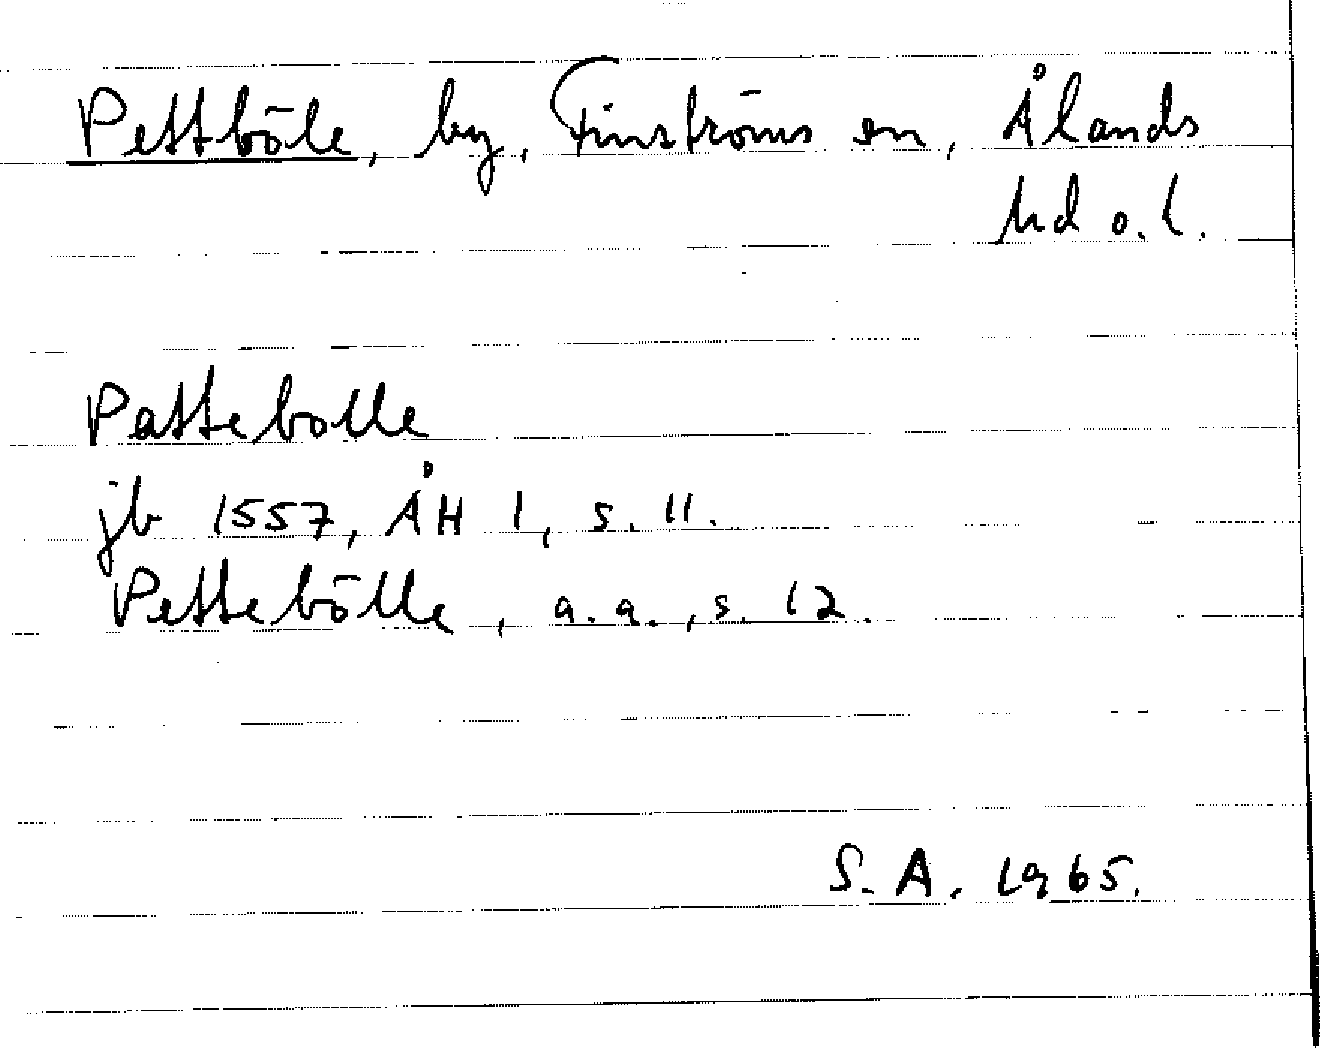 Pettböle, by, Finströms sn, Ålands
hd o. l.
Pattebolle
jb 1557, ÅH 1, s. 11.
Pettebölle, a.a., s. 12.
S. A. 1965.